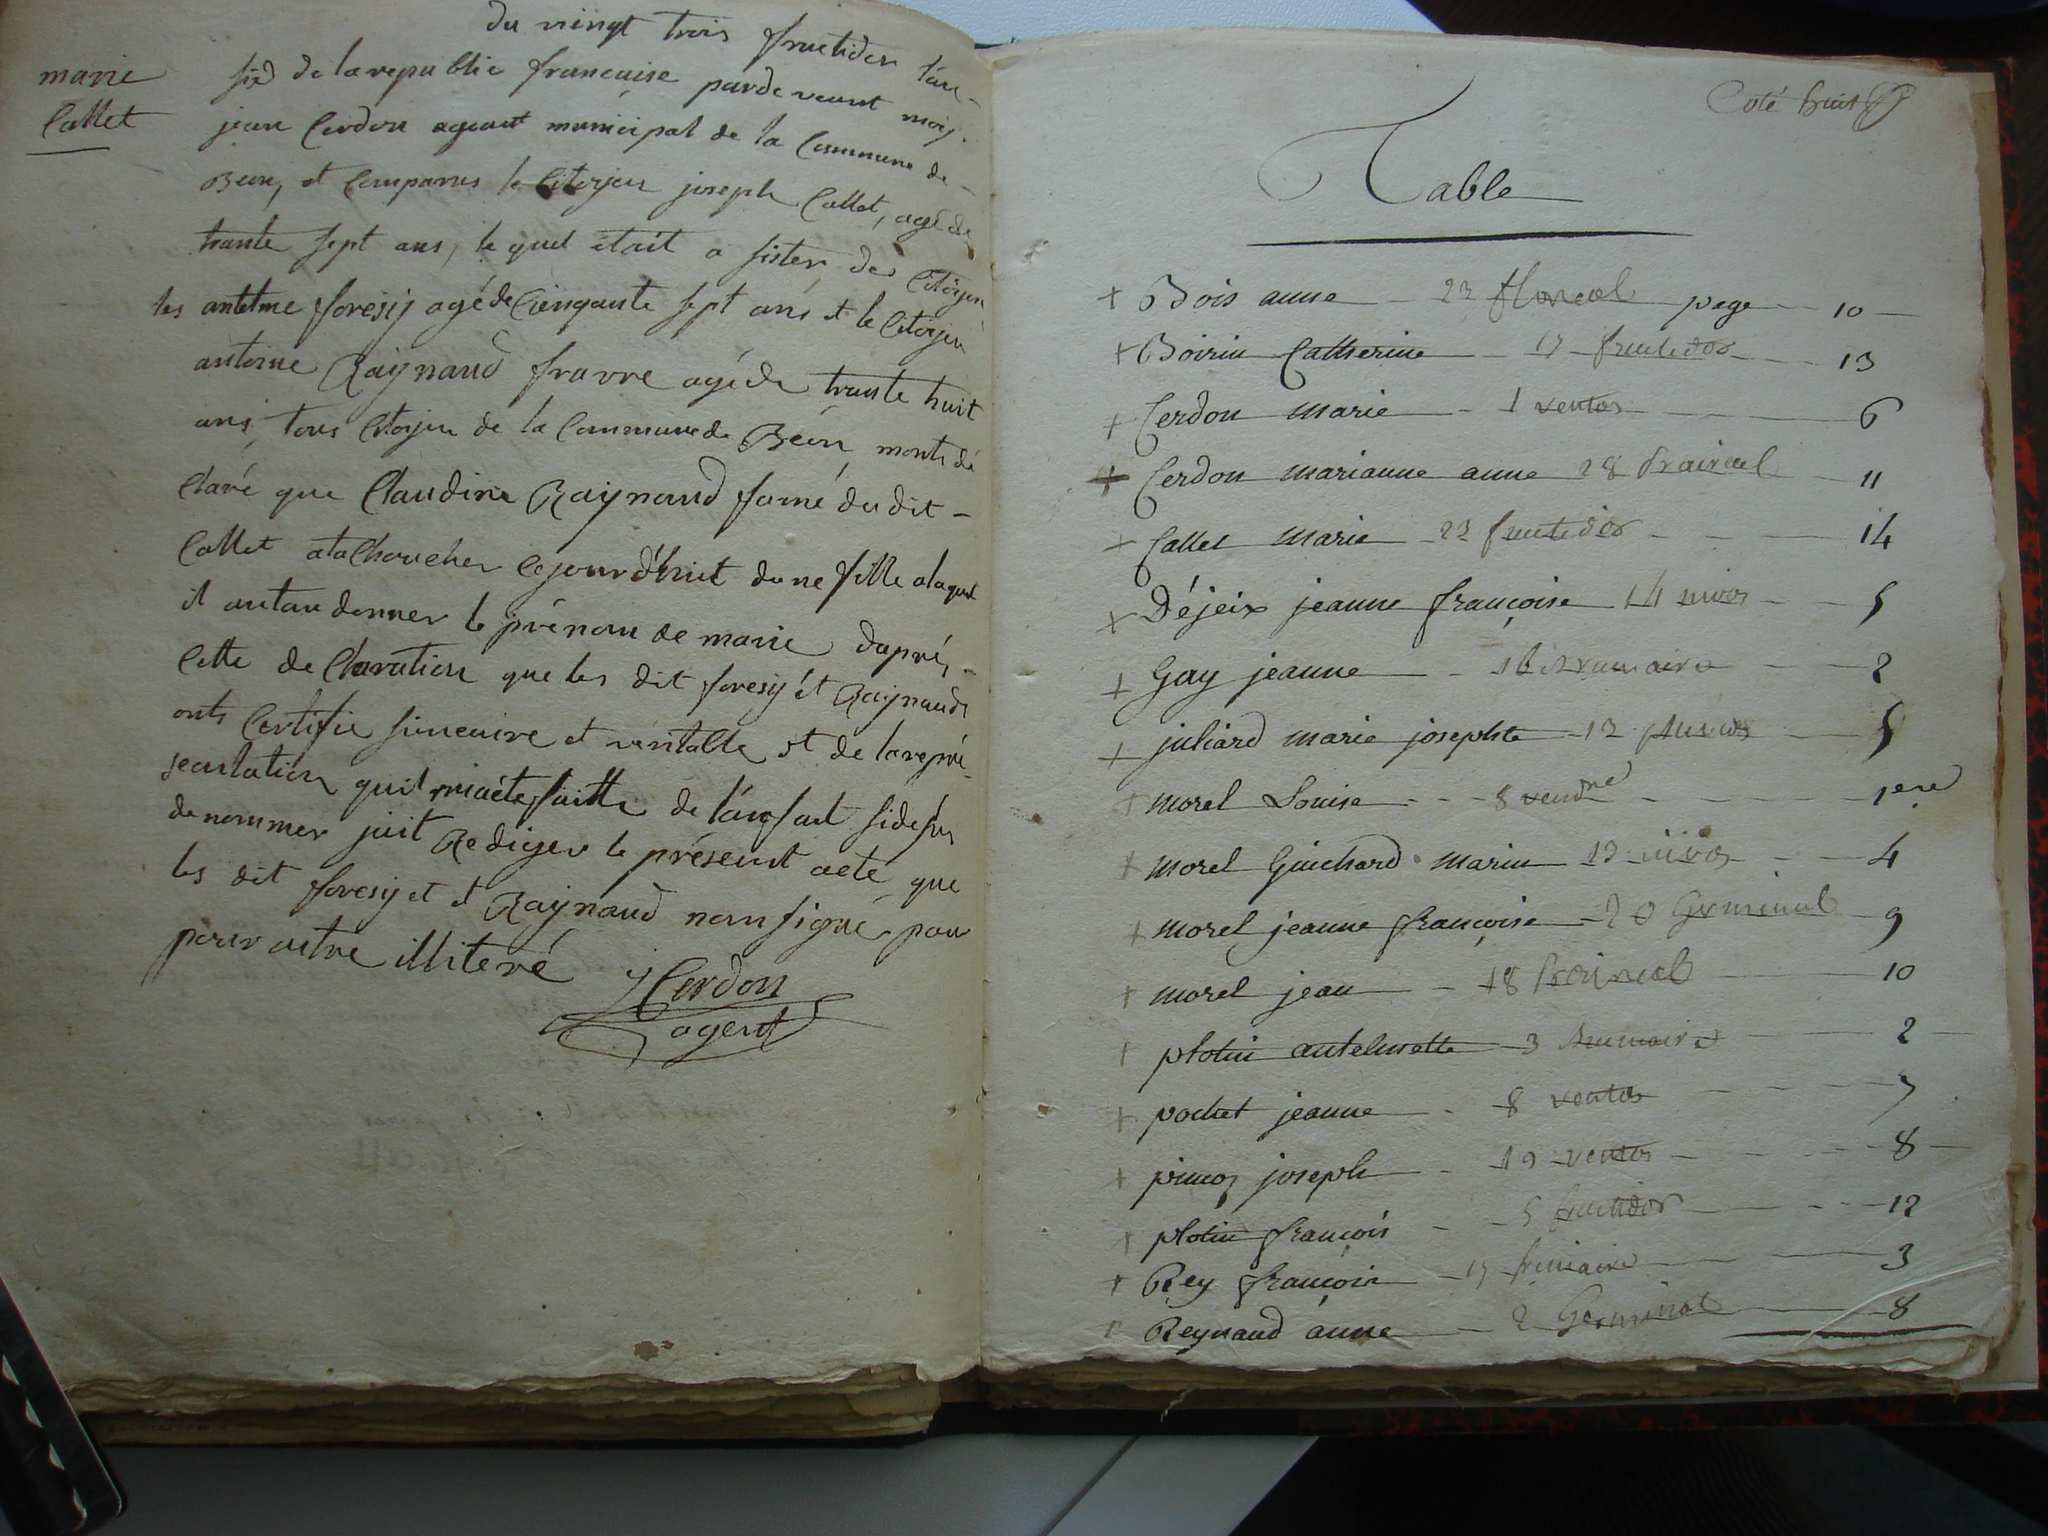 marie
Callet
du vingt trois fructidor l'an
six de la republic francaise pardeveant moy
jean Cerdon ageant municipal de la Commune de
Beon, et Comparus le Citoyen joseph Callet, agé de
trante sept ans, le quel était a sister des Citoyen
les antelme foresÿ agé de Cinquante sept ans et le Citoyen
antoine Raÿnaud fravre agé de trante huit
ans, tous Citoyen de la Commune de Beon, monts dé
Claré que Claudine Raÿnaud famé du dit
Callet ata Choucher ce jourd'huit du ne fille a laquel
il antan donner le prénom de marie daprés
Cette de Claration que les dit foresÿ ét Raÿnaud
onts Certifie sinceaire et véritable et de la repré
seantation quil miaéte faitte de l'anfant side sus
de nommer jait Rediger le préseant acte que
les dit foresÿ et et Raÿnaud nom signé pour
pour astre illiteré
J Cerdon
agent
Coté huit
Table
+ Bois anne 23 floreal page 10
+ Boirin Catherine 17 fructidor 13
+ Cerdon marie 1 ventos 6
+ Cerdon marianne anne 28 Prairial 11
+ Callet marie 23 fructidor 14
+ Déjeix jeanne françoise 14 nivos 5
+ Gay jeanne 16 Brumaire 2
+ juliard marie josephte 12 pluvios 5
+ morel Louise 8 vendre 1ere
+ morel Guichard marin 19 nivos 4
+ morel jeanne françoise 20 Germinal 9
+ morel jean 18 Prairial 10
+ plotin antelmette 3 Brumaire 2
+ pochet jeanne 8 ventos 7
+ pinoz joseph 19 ventos 8
+ plotin françois 5 fructidor 12
+ Rey françois 17 frimaire 3
+ Reynaud anne 2 Germinal 8